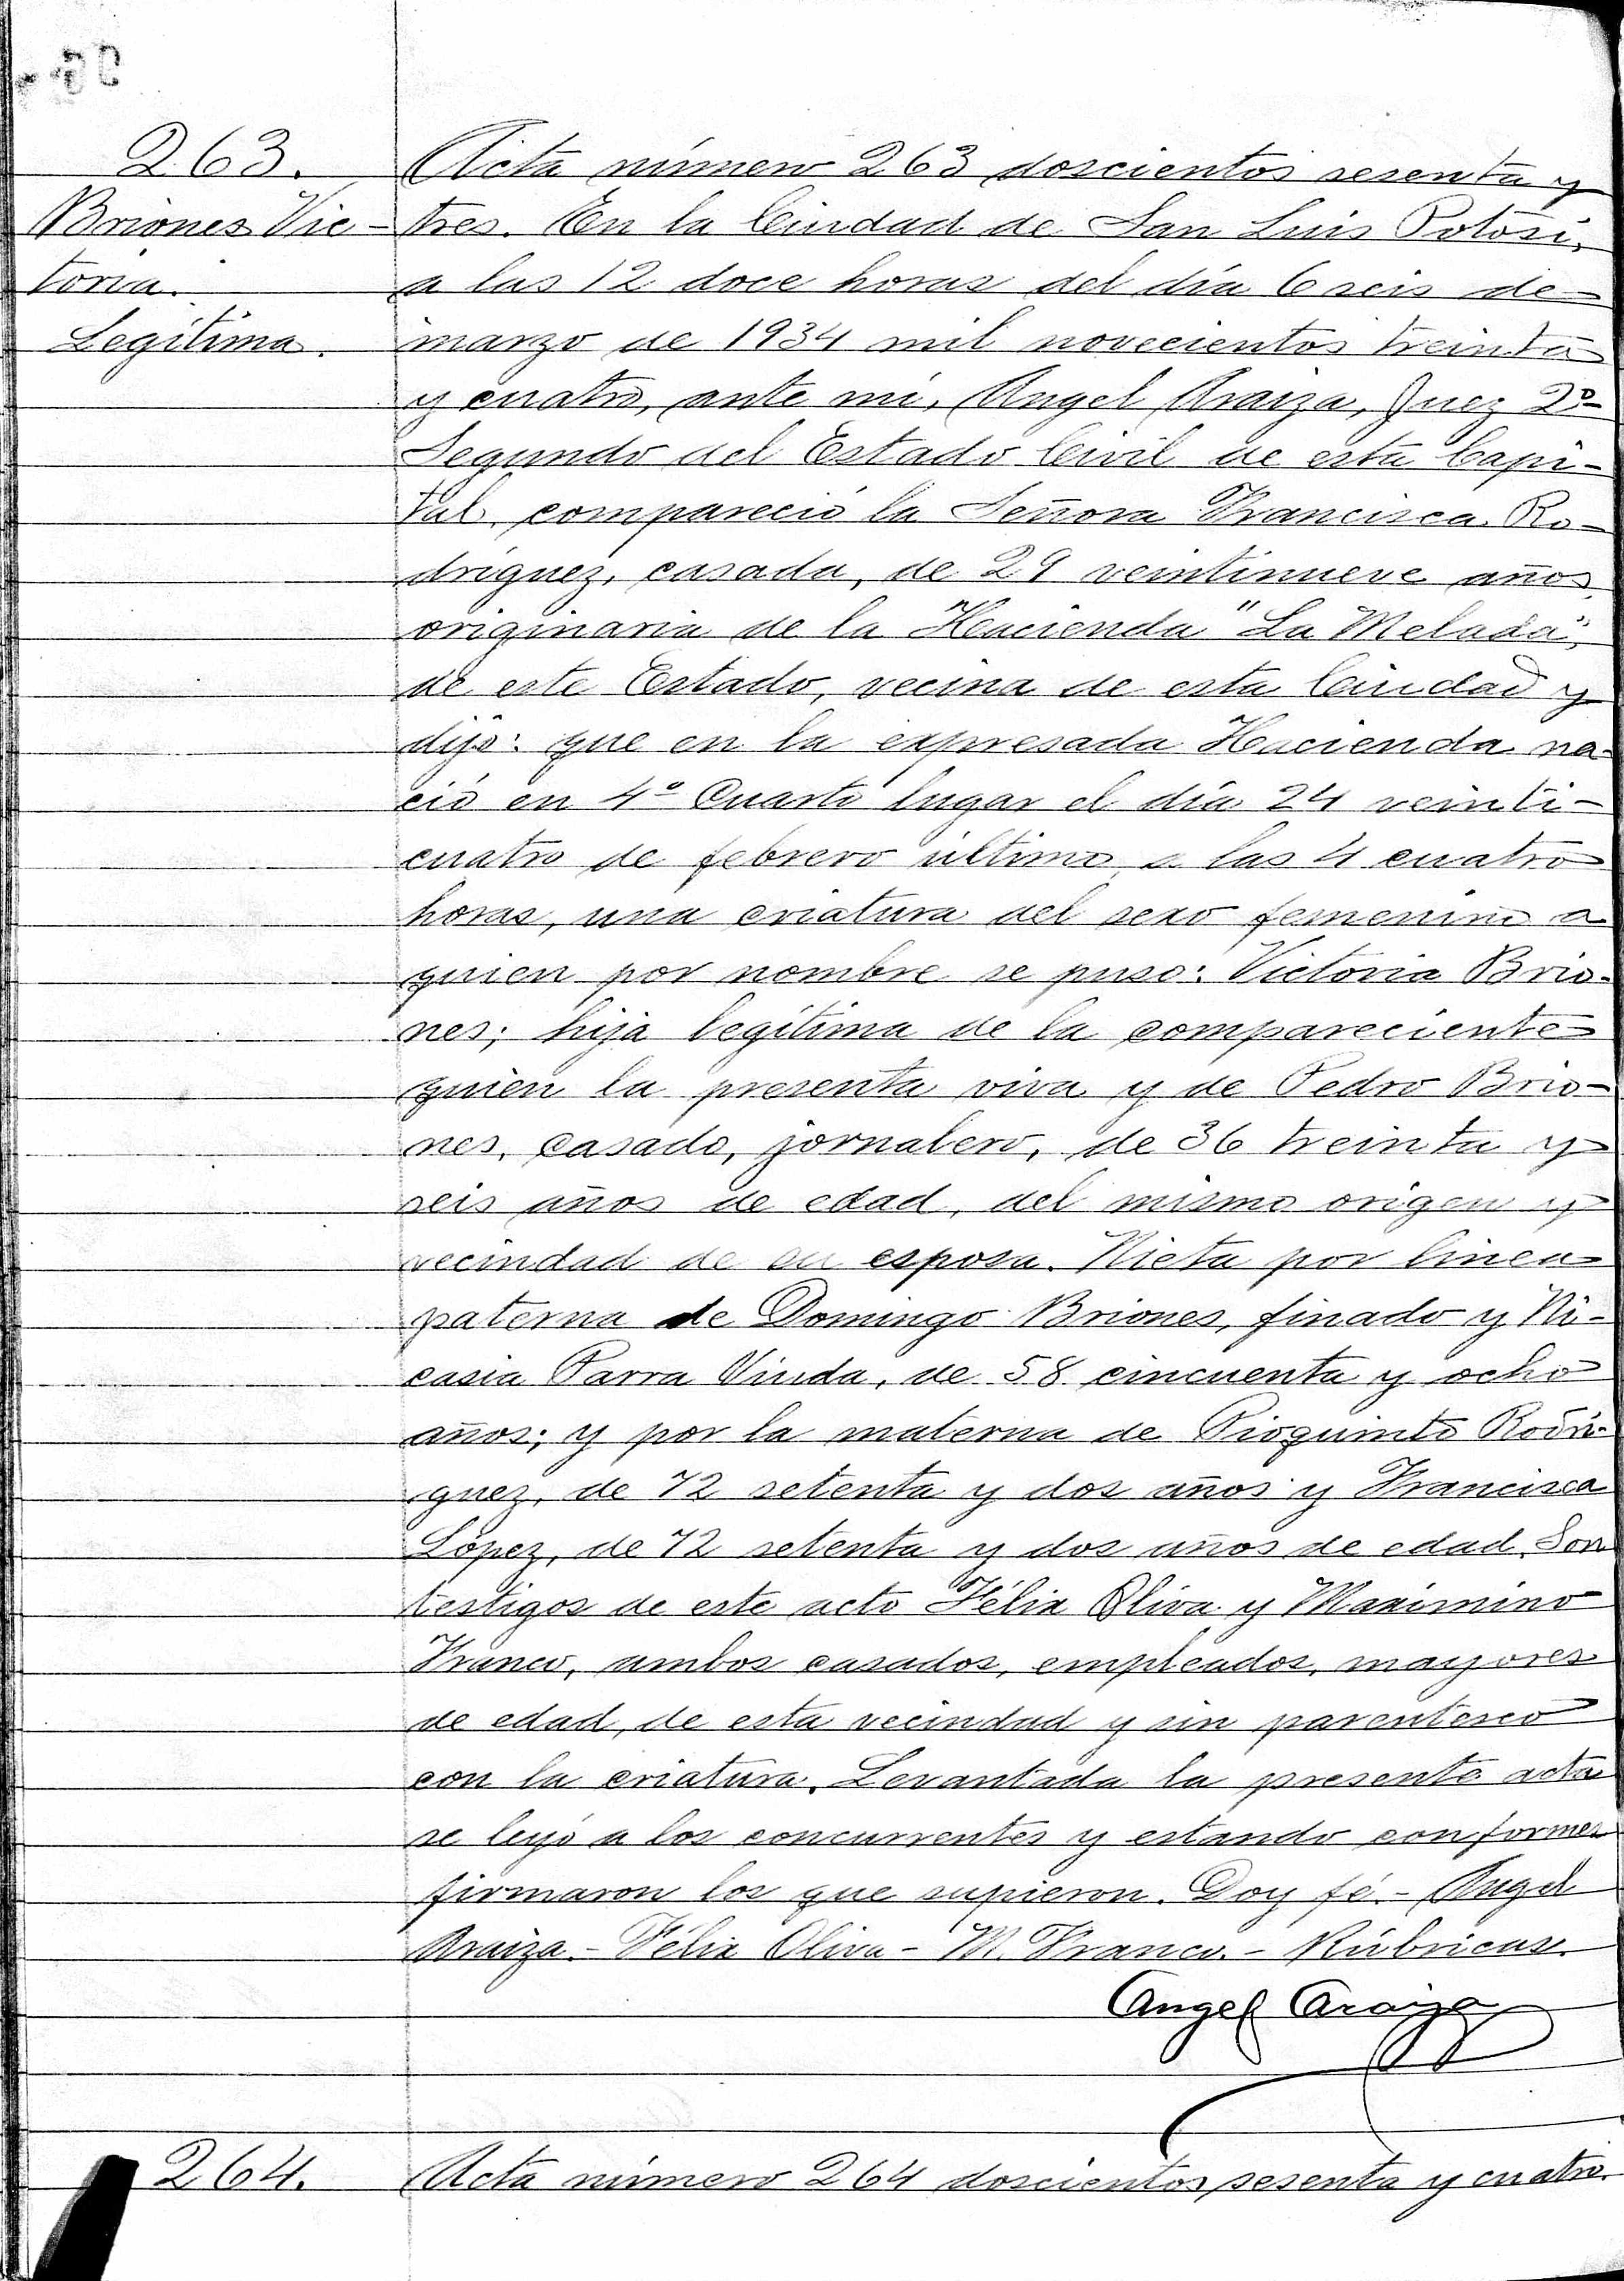 263.
Briones Vic-
toria.
Legítima.
Acta número 263 doscientos sesenta y
tres. En la Ciudad de San Luis Potosí,
a las 12 doce horas del día 6 seis de
marzo de 1934 mil novecientos treinta
y cuatro, ante mí, Angel Araiza, Juez 2º
Segundo del Estado Civil de esta Capi-
tal, compareció la Señora Francisca Ro-
dríguez, casada, de 29 veintinueve años,
originaria de la Hacienda "La Melada",
de este Estado, vecina de esta Ciudad y
dijo: que en la expresada Hacienda na-
ció en 4º Cuarto lugar el día 24 veinti-
cuatro de febrero último, a las 4 cuatro
horas, una criatura del sexo femenino a
quien por nombre se puso: Victoria Brio-
nes; hija legítima de la compareciente
quien la presenta viva y de Pedro Brio-
nes, casado, jornalero, de 36 treinta y
seis años de edad, del mismo origen y
vecindad de su esposa. Nieta por linea
paterna de Domingo Briones, finado y Ni-
casia Parra Viuda, de 58 cincuenta y ocho
años; y por la materna de Pioquinto Rodrí-
guez, de 72 setenta y dos años y Francisca
López, de 72 setenta y dos años de edad. Son
testigos de este acto Félix Oliva y Maximino
Franco, ambos casados, empleados, mayores
de edad, de esta vecindad y sin parentesco
con la criatura. Levantada la presente acta
se leyó a los concurrentes y estando conformes
firmaron los que supieron. Doy fé.- Angel
Araiza.- Félix Oliva - M. Franco.- Rúbricas.
Angel Araiza
264.
Acta número 264 doscientos sesenta y cuatro.